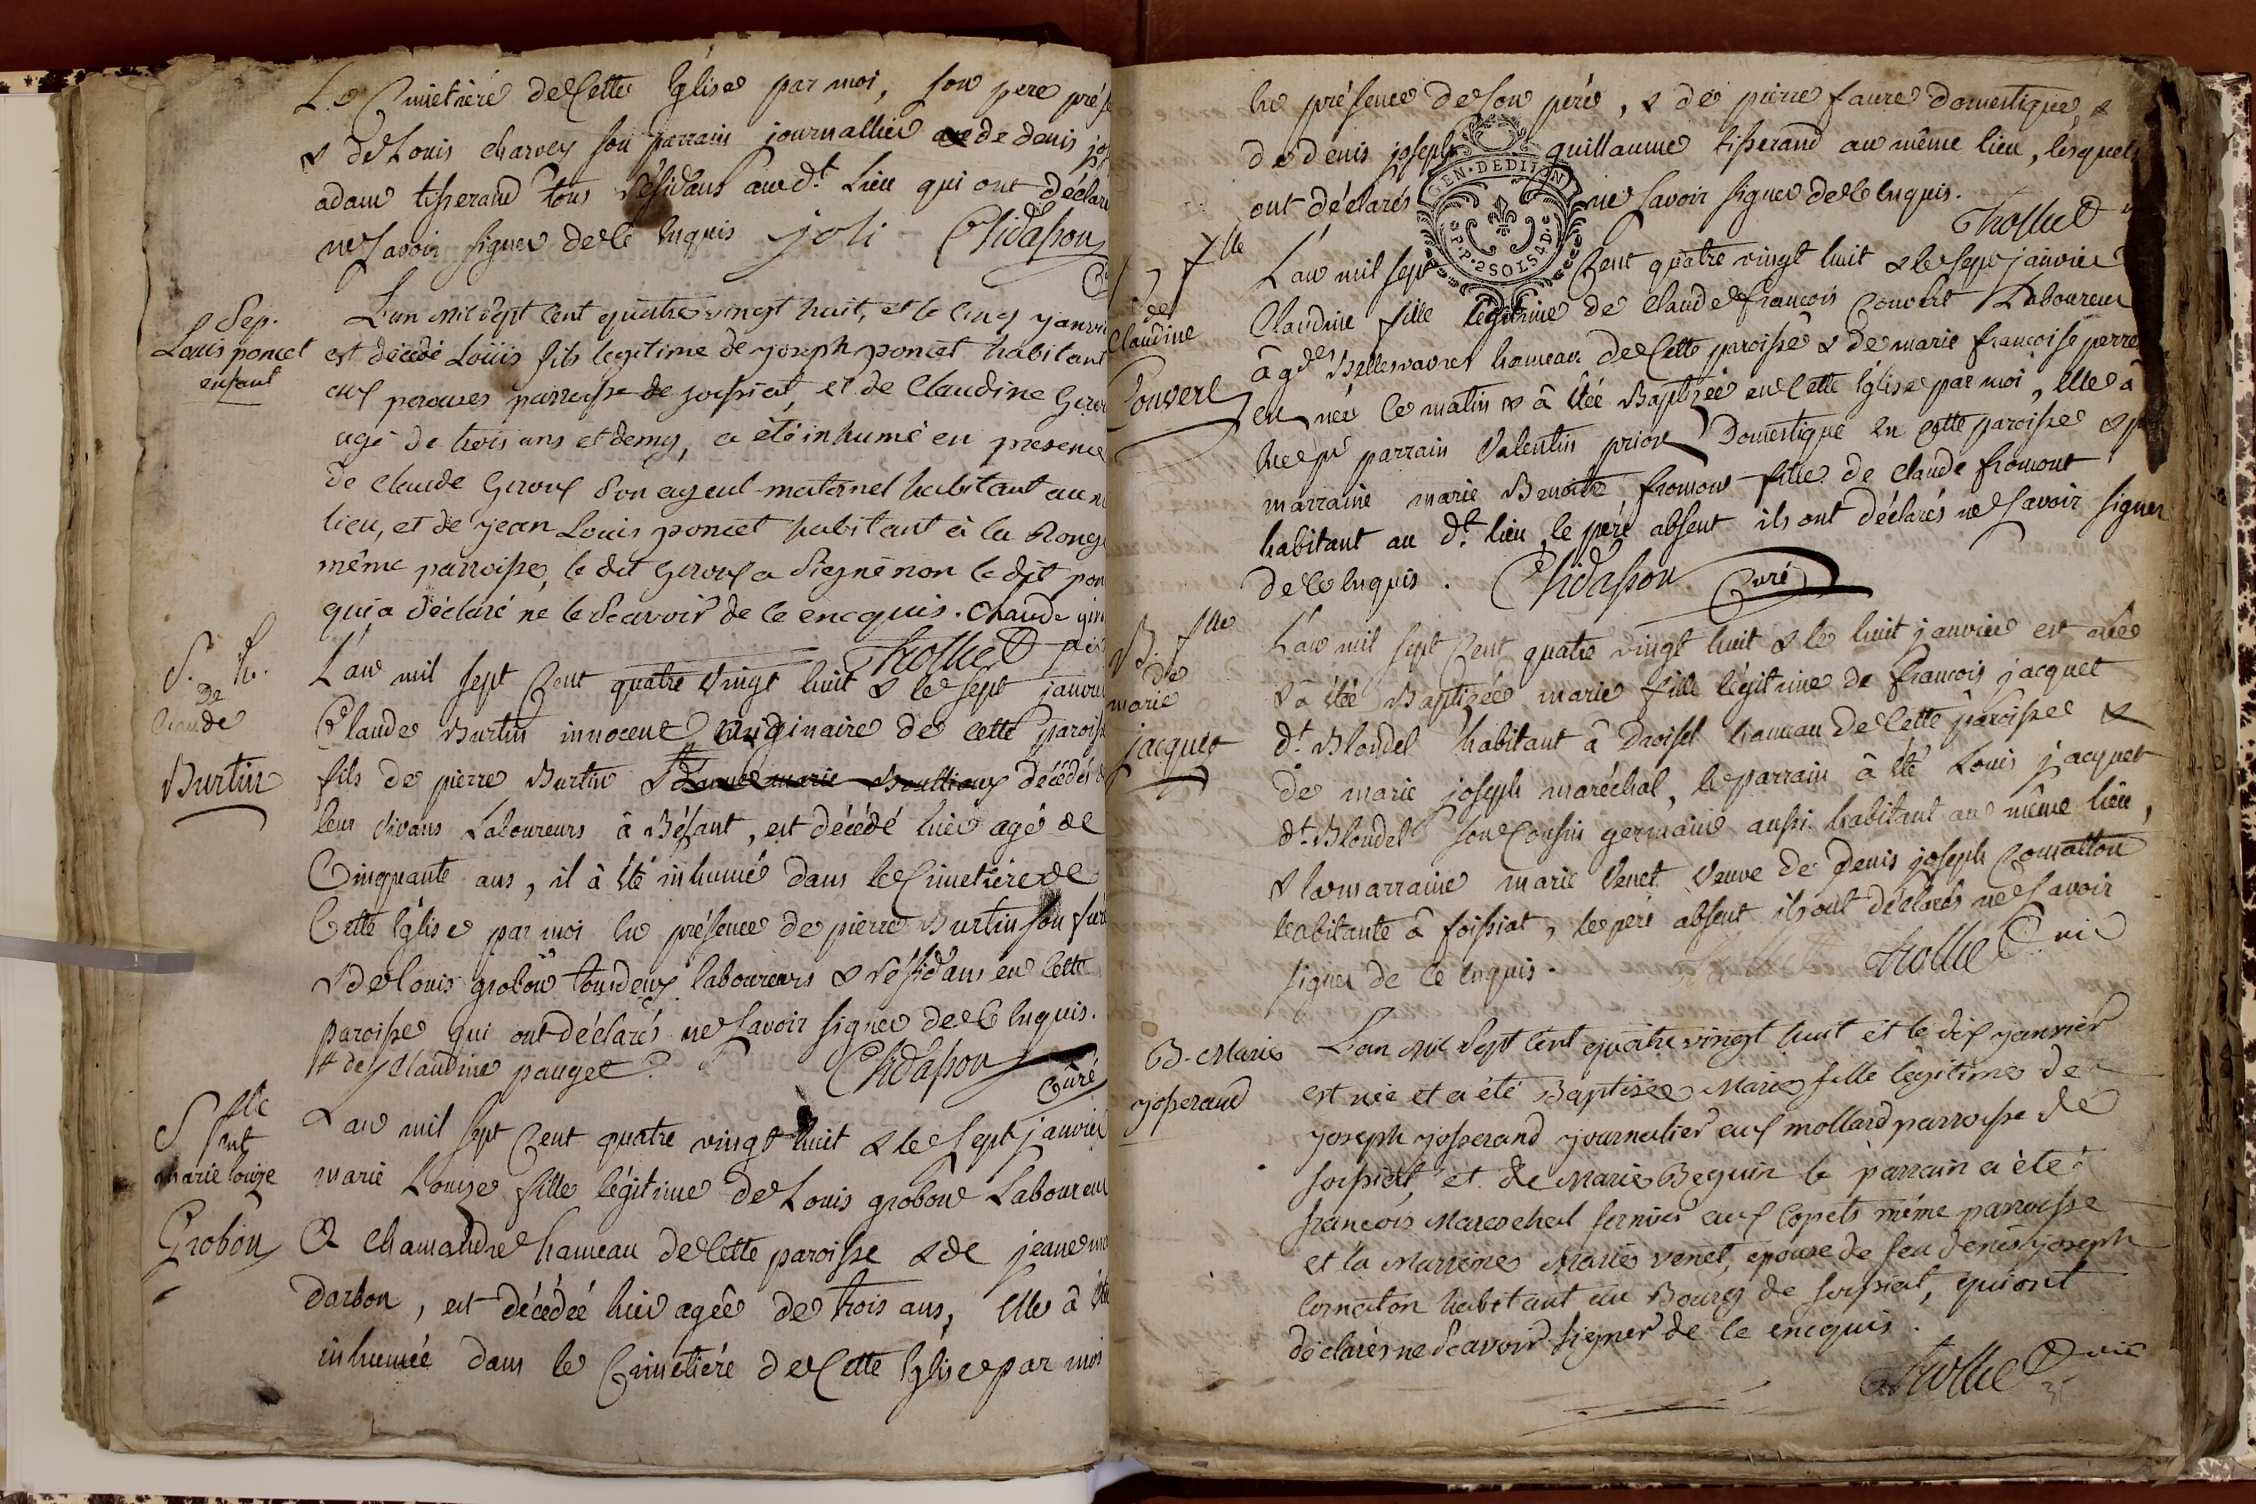 Le Cimetiére de Cette Eglise par moi, son pere
& de Louis charvey son parrain journallier de denis
adam tisserand tous résidans aud.t Lieu qui ont
ne savoir signer de ce Enquis joli Chidasson
Sep.
Louis poncet
enfant
L'an mil sept cent quatre vingt huit, et le cinq
est décédé Loüis fils legitime de joseph poncet habitant
aux parroisse de foissiat, et de Claudine
agé de trois ans et demy, a été inhumé en presence
de Claude Giroux son ayeul maternel habitant au
lieu, et de jean Louis poncet habitant à la
même parroisse, le dit Giroux a signé non le dit
qui a déclaré ne le scavoir de ce encquis. Claude
Chollet
S.
De
Claude
Burtin
L'an mil sept Cent quatre vingt huit & le sept
Claude Burtin innocent originaire de cette
fils de pierre Burtin & décédés
leur vivans Laboureurs à Béfant, est décédé hier agé de
Cinquante ans, il à été inhumé dans le Cimetiére de
Cette Eglise par moi En présence de pierre Burtin son
& de Louis grobon tous deux laboureurs & résidans en Cette
paroisse qui ont déclarés ne savoir signer de ce Enquis.
# de Claudine pauget
Chidasson
Curé
S
marie Louize
Grobon
L'an mil sept Cent quatre vingt huit & le sept janvier
marie Louize fille légitime de Louis grobon Laboureur
à chamandre hameau de Cette paroisse & de jeane
darbon, est décédée hier agée de trois ans, Elle à
inhumée dans le Cimetiére de Cette Eglise par moi
En présence de son pére, & de pierre faure domestique, &
de denis joseph guillaume tisserand au même lieu, lesquels
ont déclarés ne savoir signer de ce Enquis.
GEN. DE DIJON
P.P. 2 SOLS 4 D.
Chollet
fille
de
Claudine
Convert
L'an mil sept Cent quatre vingt huit & le sept janvier
Claudine fille légitime de Claude françois Convert Laboureur
à g.des Bellesvavres hameau de Cette paroisse & de marie françoise
est née Ce matin & à été Baptizée en Cette Eglise par moi, Elle à
Eue pr parrain Valentin prior Domestique En cette paroisse &
marraine marie Benoite fromont fille de claude fromont
habitant au d.t lieu, le pére absent ils ont déclarés ne savoir signer
de ce Enquis. Chidasson Curé
B. fille
de
marie
jacquet
L'an mil sept Cent quatre vingt huit & le huit janvier est née
& à été Baptizée marie fille légitime de françois jacquet
d.t Blondel habitant à Daoisel hameau de Cette paroisse &
de marie joseph maréchal, le parrain à été Louis jacquet
d.t Blondel son Cousin germain aussi habitant au même lieu,
& la marraine marie Venet Veuve de Denis joseph Comatton
habitante à foissiat, le pére absent ils ont déclarés ne savoir
signer de ce Enquis.
Chollet
B. Marie
josserand
L'an mil sept cent quatre vingt huit et le dix janvier
est née et a été Baptisée Marie fille légitime de
joseph josserand journalier aux mollard parroisse de
foissiat, et de Marie Beguin le parrain a été
françois Mareschal fermier aux Copets même parroisse
et la Marreine Marie venet, epouse de feu denis joseph
Comaton habitant au Bourg de foissiat, qui ont
déclarés ne scavoir signer de ce encquis.
Chollet